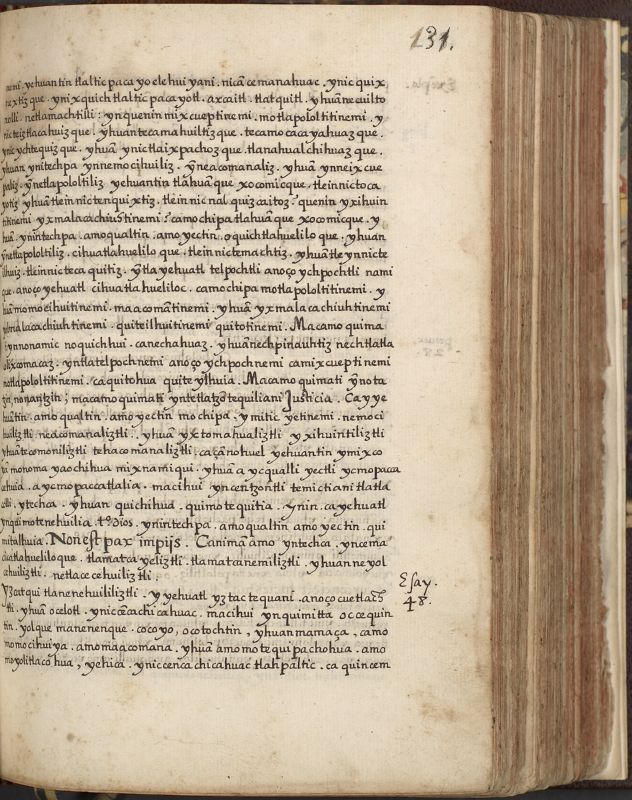 131.
nemi. yehuantin tlaltic paca yo elehui yani. nicã cemanahuac. ynic quix
nextiz que. yn ixquich tlaltic paca yotl. axcaitl. tlatquitl. yhuã necuilto
nolli. netlamachtilli: yn quenin mix cueptinemi. motlapololtitinemi. y
nic teiztlacahuiz que. yhuan tecamahuiltiz que. tecamocacayahuaz que.
ynic ychtequiz que. yhuã ynic tlaixpachoz que. tlanahualchihuaz que.
yhuan ynitechpa ynnemocihuiliz. yneacomanaliz. yhuã ynneixcue
paliz. ynetlapololtiliz yehuantin tlahuãque xocomicque. tlein nictoca
yotiz yhuã tlein nic tenquixtiz. tlein nic nal quizcaitoz? quenin yxihuin
titinemi yxmalacachiuhtinemi? camochipa tlahuãque xocomicque. y
huã. ynintechpa. amo qualtin. amo yectin. quichtlahuelilo que. yhuan
ynetlapololtiliz. cihuatlahuelilo que. tlein nictemachtiz. yhuã tle ynnicte
ilhuiz. tlein nic teca quitiz. yntla yehuatl telpochtli anoço ychpochtli nami
que. anoço yehuatl cihuatlahueliloc. camochipa motlapololtitinemi. y
huã momocihuitinemi. maacomãtinemi. yhuã yxmalacachiuhtinemi
quiteilhuitinemi quitotinemi. Macamo quima
ynnonamic noquichhui. canechahuaz. yhuã nechpinauhtiz nechtlatla
olixomacaz. yntlatelpochnemi anoço ychpochnemi camixcueptinemi
motlapololtitinemi. caquitohua quiteylhuia. Macamo quimati ynnota
tzin, nonantzin; macamo quimati yntetlatzõtequiliani Justicia. Cayye
huãtin. amo qualtin. amo yectin mochipa. ymitic yetinemi. nemoci
huiliztli neacomanaliztli. yhuã yxtomahualiztli yxihuintiliztli
yhuã tecomoniliztli tehacomanaliztli. caçãnohuel yehuantin ymixco
monoma yaochihua mixnamiqui. yhuã aycqualli yectli ycmopaca
cehuia. aycmopaccatlalia. macihui yncentzontli temictiani tlatla
colli. ytechca. yhuan quichihua. quimotequitia. Ynin. cayehuatl
ynquimotenehuilia. tº Dios. ynintechpa. amo qualtin amo yectin. qui
mitalhuia. Non est pax impijs. Canimãamo yntechca. yncemã
huatlahueliloque. tlamatcayeliztli. tlamatcanemiliztli. yhuan neyol
cehuiliztli. netlacecehuiliztli.
Yzcatqui tlanenehuililiztli. yyehuatl yztactequani. anoço cuetlach
tli. yhuã ocelotl. yniccẽcachicahuac. macihui ynquimitta occequin
tin. yolque manenenque. cocoyo, ocotochtin, yhuan mamaça, camo
momocihuiya. amo maacomana. yhuã amo motequipachohua. amo
moyolitlacohua, yehica. yniccencachicahuac tlahpaltic. caquincem
Esay.
48.